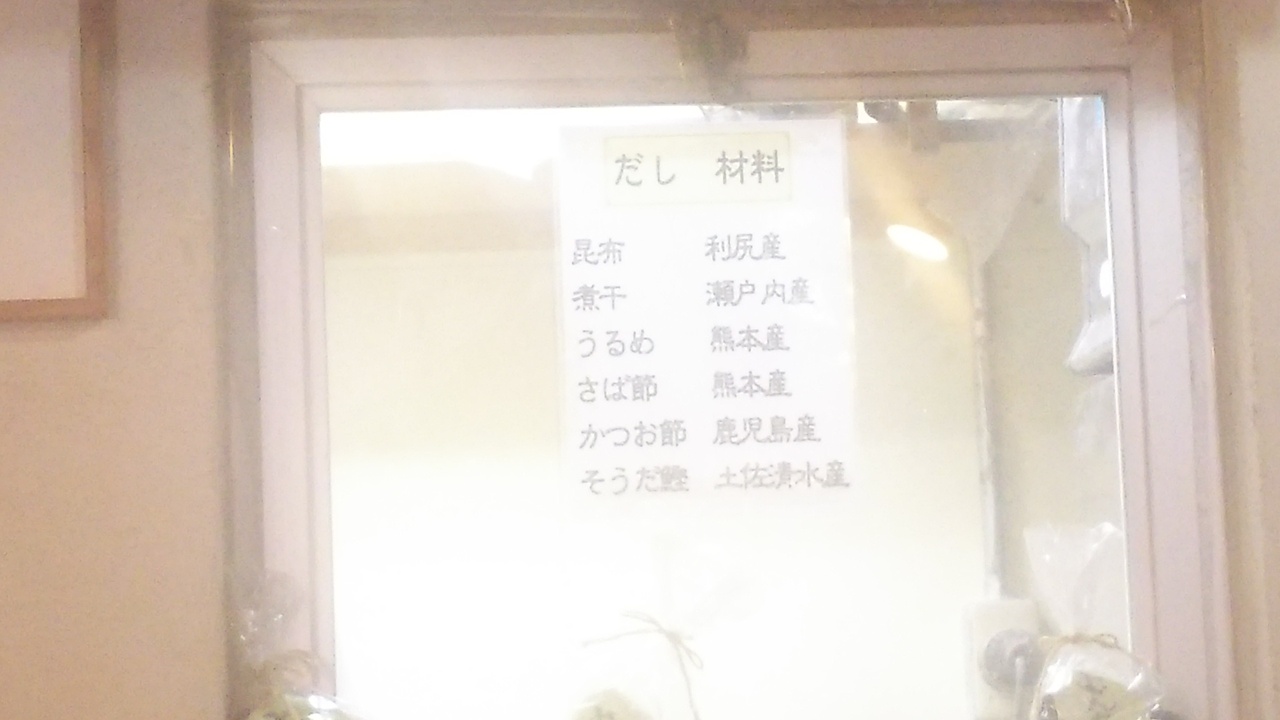 だし 材料
昆布 利尻産
煮干 瀬戸内産
うるめ 熊本産
さば節 熊本産
かつお節 鹿児島産
そうだ鰹 土佐清水産